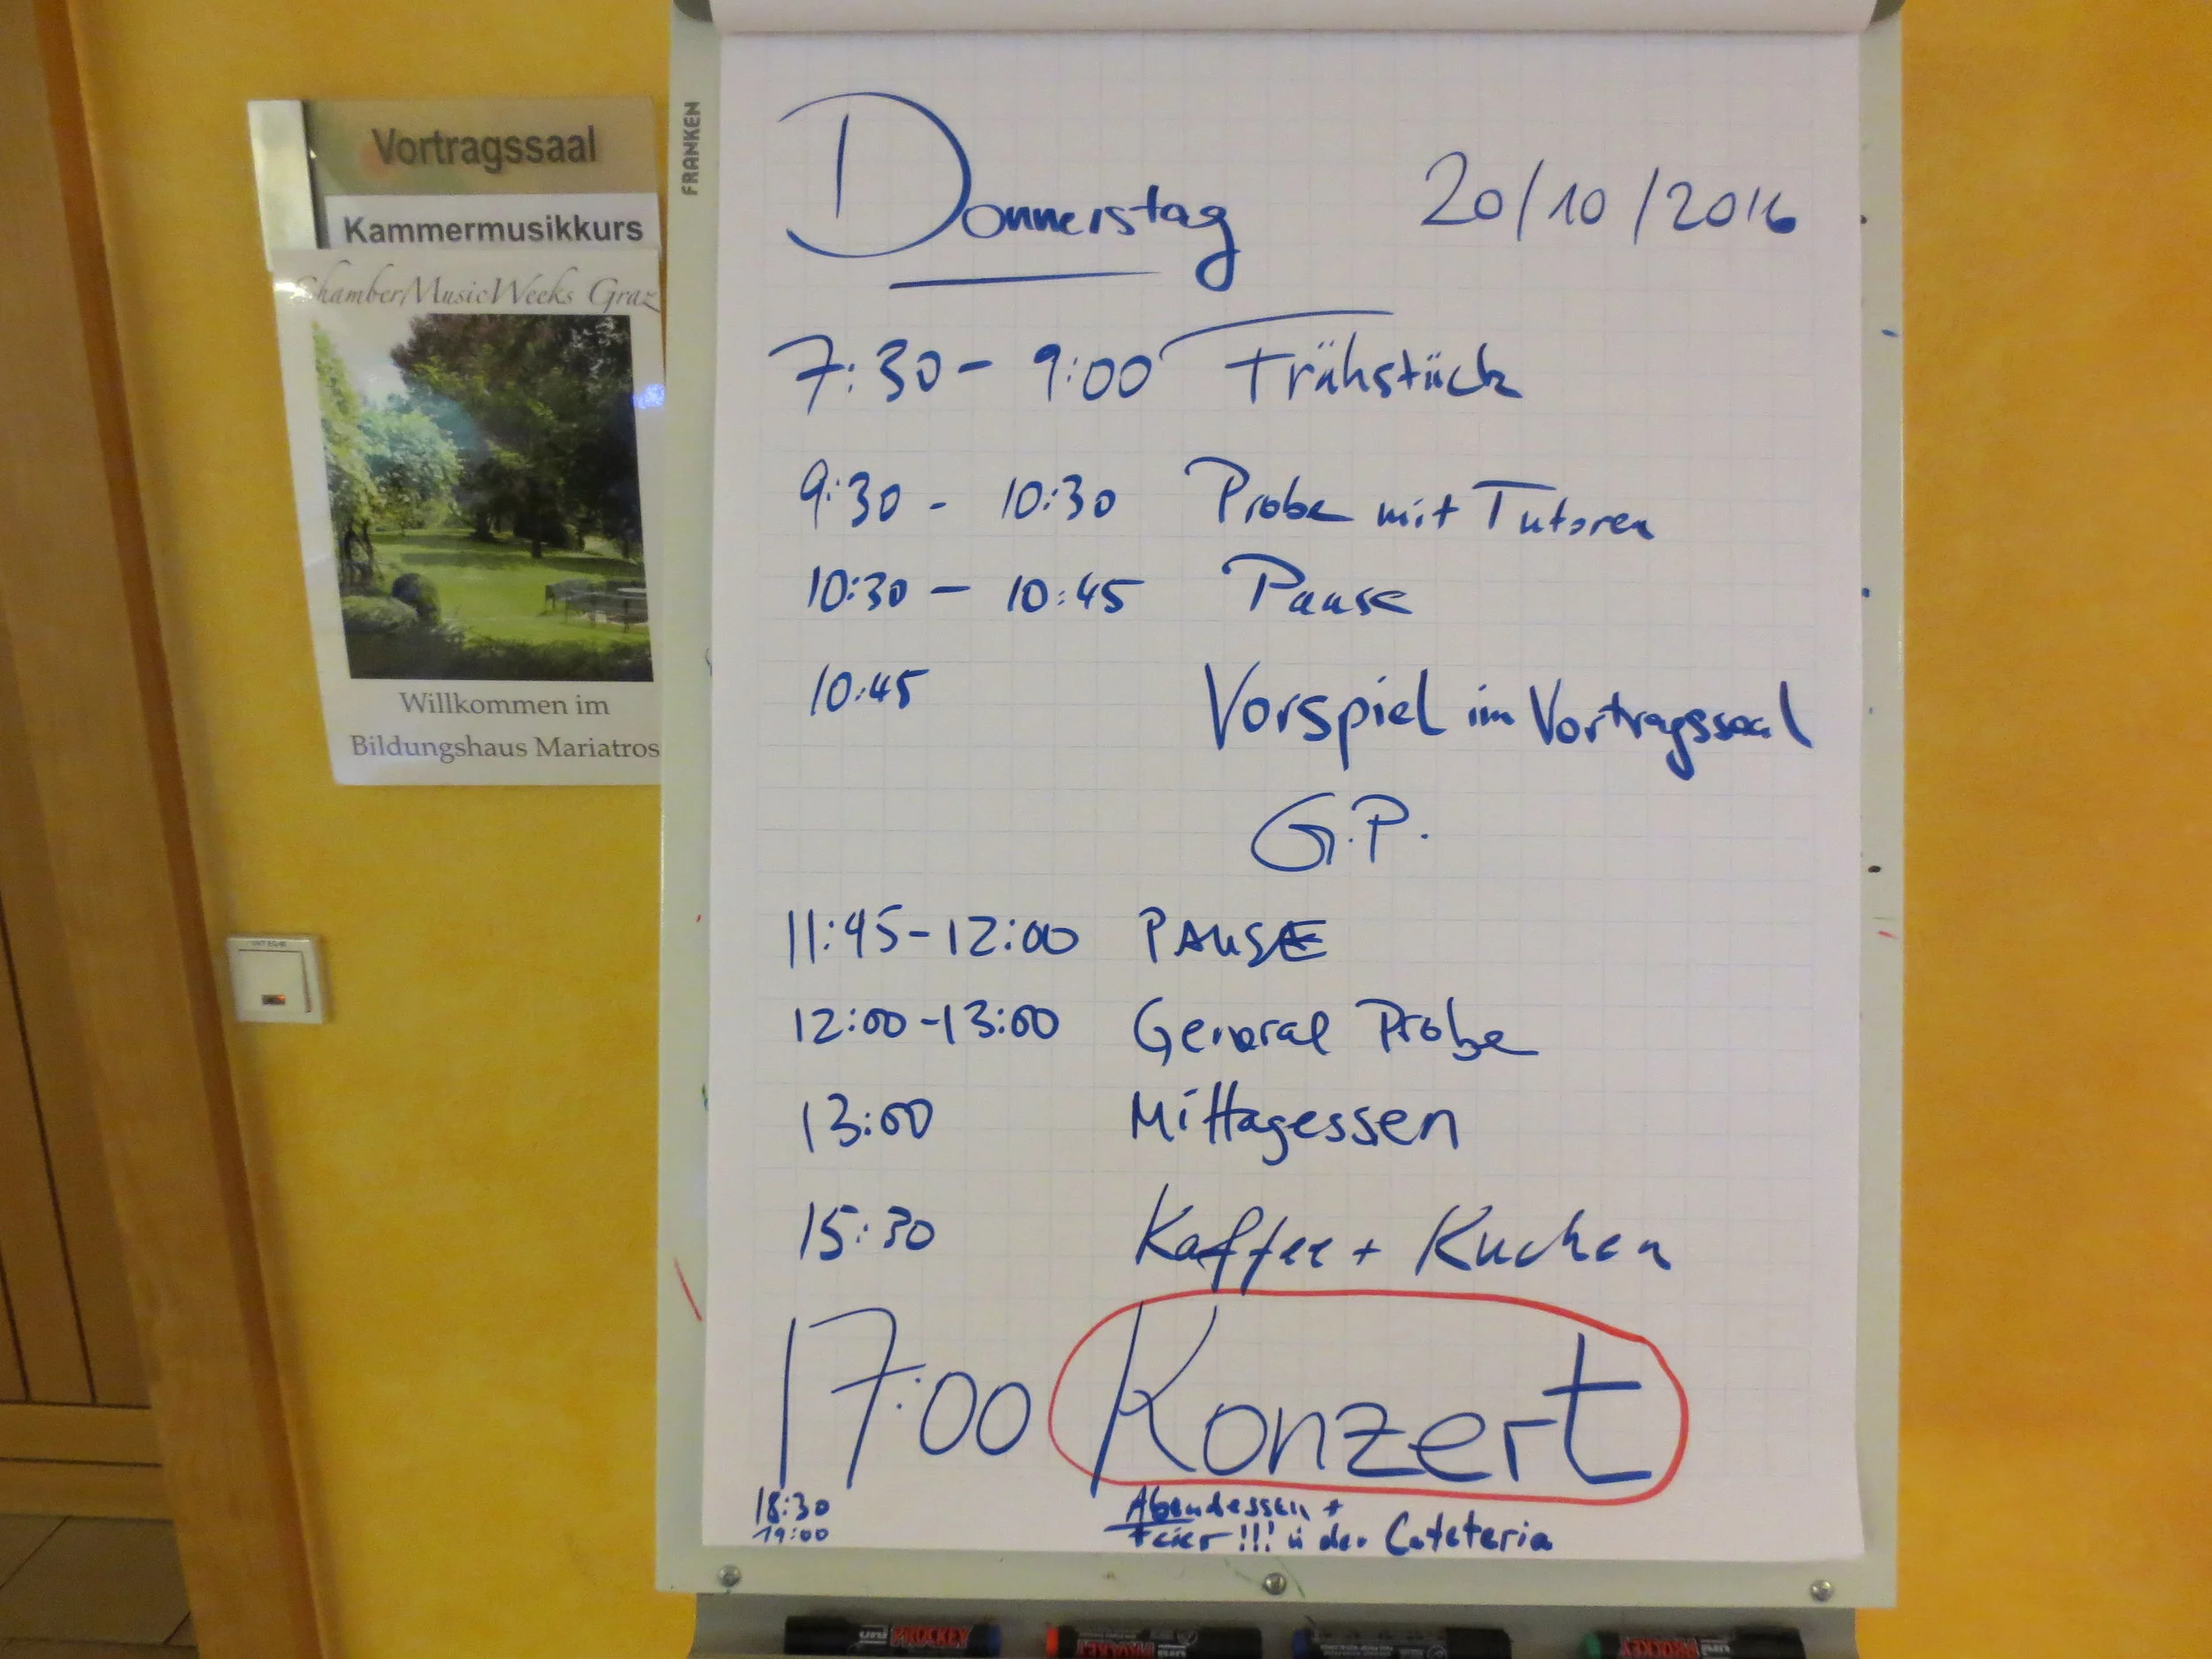 Vortragssaal
Kammermusikkurs
ChamberMusicWeeks Graz
Willkommen im
Bildungshaus Mariatros
FRANKEN
Donnerstag 20/10/2016
7:30 - 9:00 Frühstück
9:30 - 10:30 Probe mit Tutoren
10:30 - 10:45 Pause
10:45 Vorspiel im Vortragssaal
G.P.
11:45-12:00 PAUSE
12:00-13:00 General Probe
13:00 Mittagessen
15:30 Kaffee + Kuchen
17:00 Konzert
18:30 Abendessen +
19:00 Feier!!! in der Cafeteria
uni PROCKEY
PROCKEY uni
uni PROCKEY